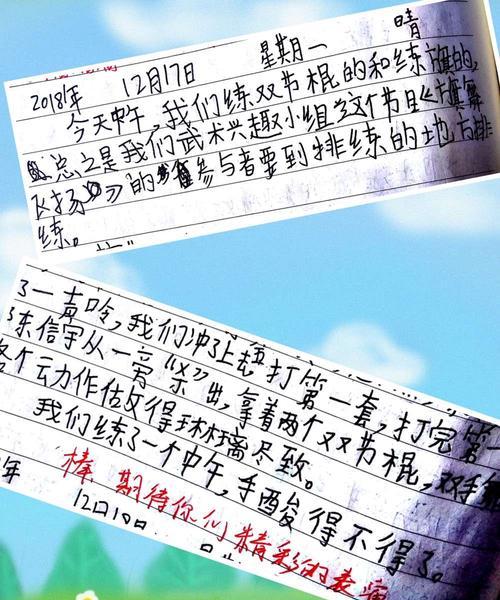 2018年 12月17日 星期一 晴
今天中午，我们练双节棍的和练旗的，
总之是我们武术兴趣小组这个节目《旗舞
飞扬》的参与者要到排练的地方排
练。
了一声哈，我们冲了上去打第一套，打完第一
东信宇从一旁“杀”出，拿着两个双节棍，双手
各个动作做得淋漓尽致。
我们练了一个中午，手酸得不得了。
棒 期待你们精彩的表演
年 12月